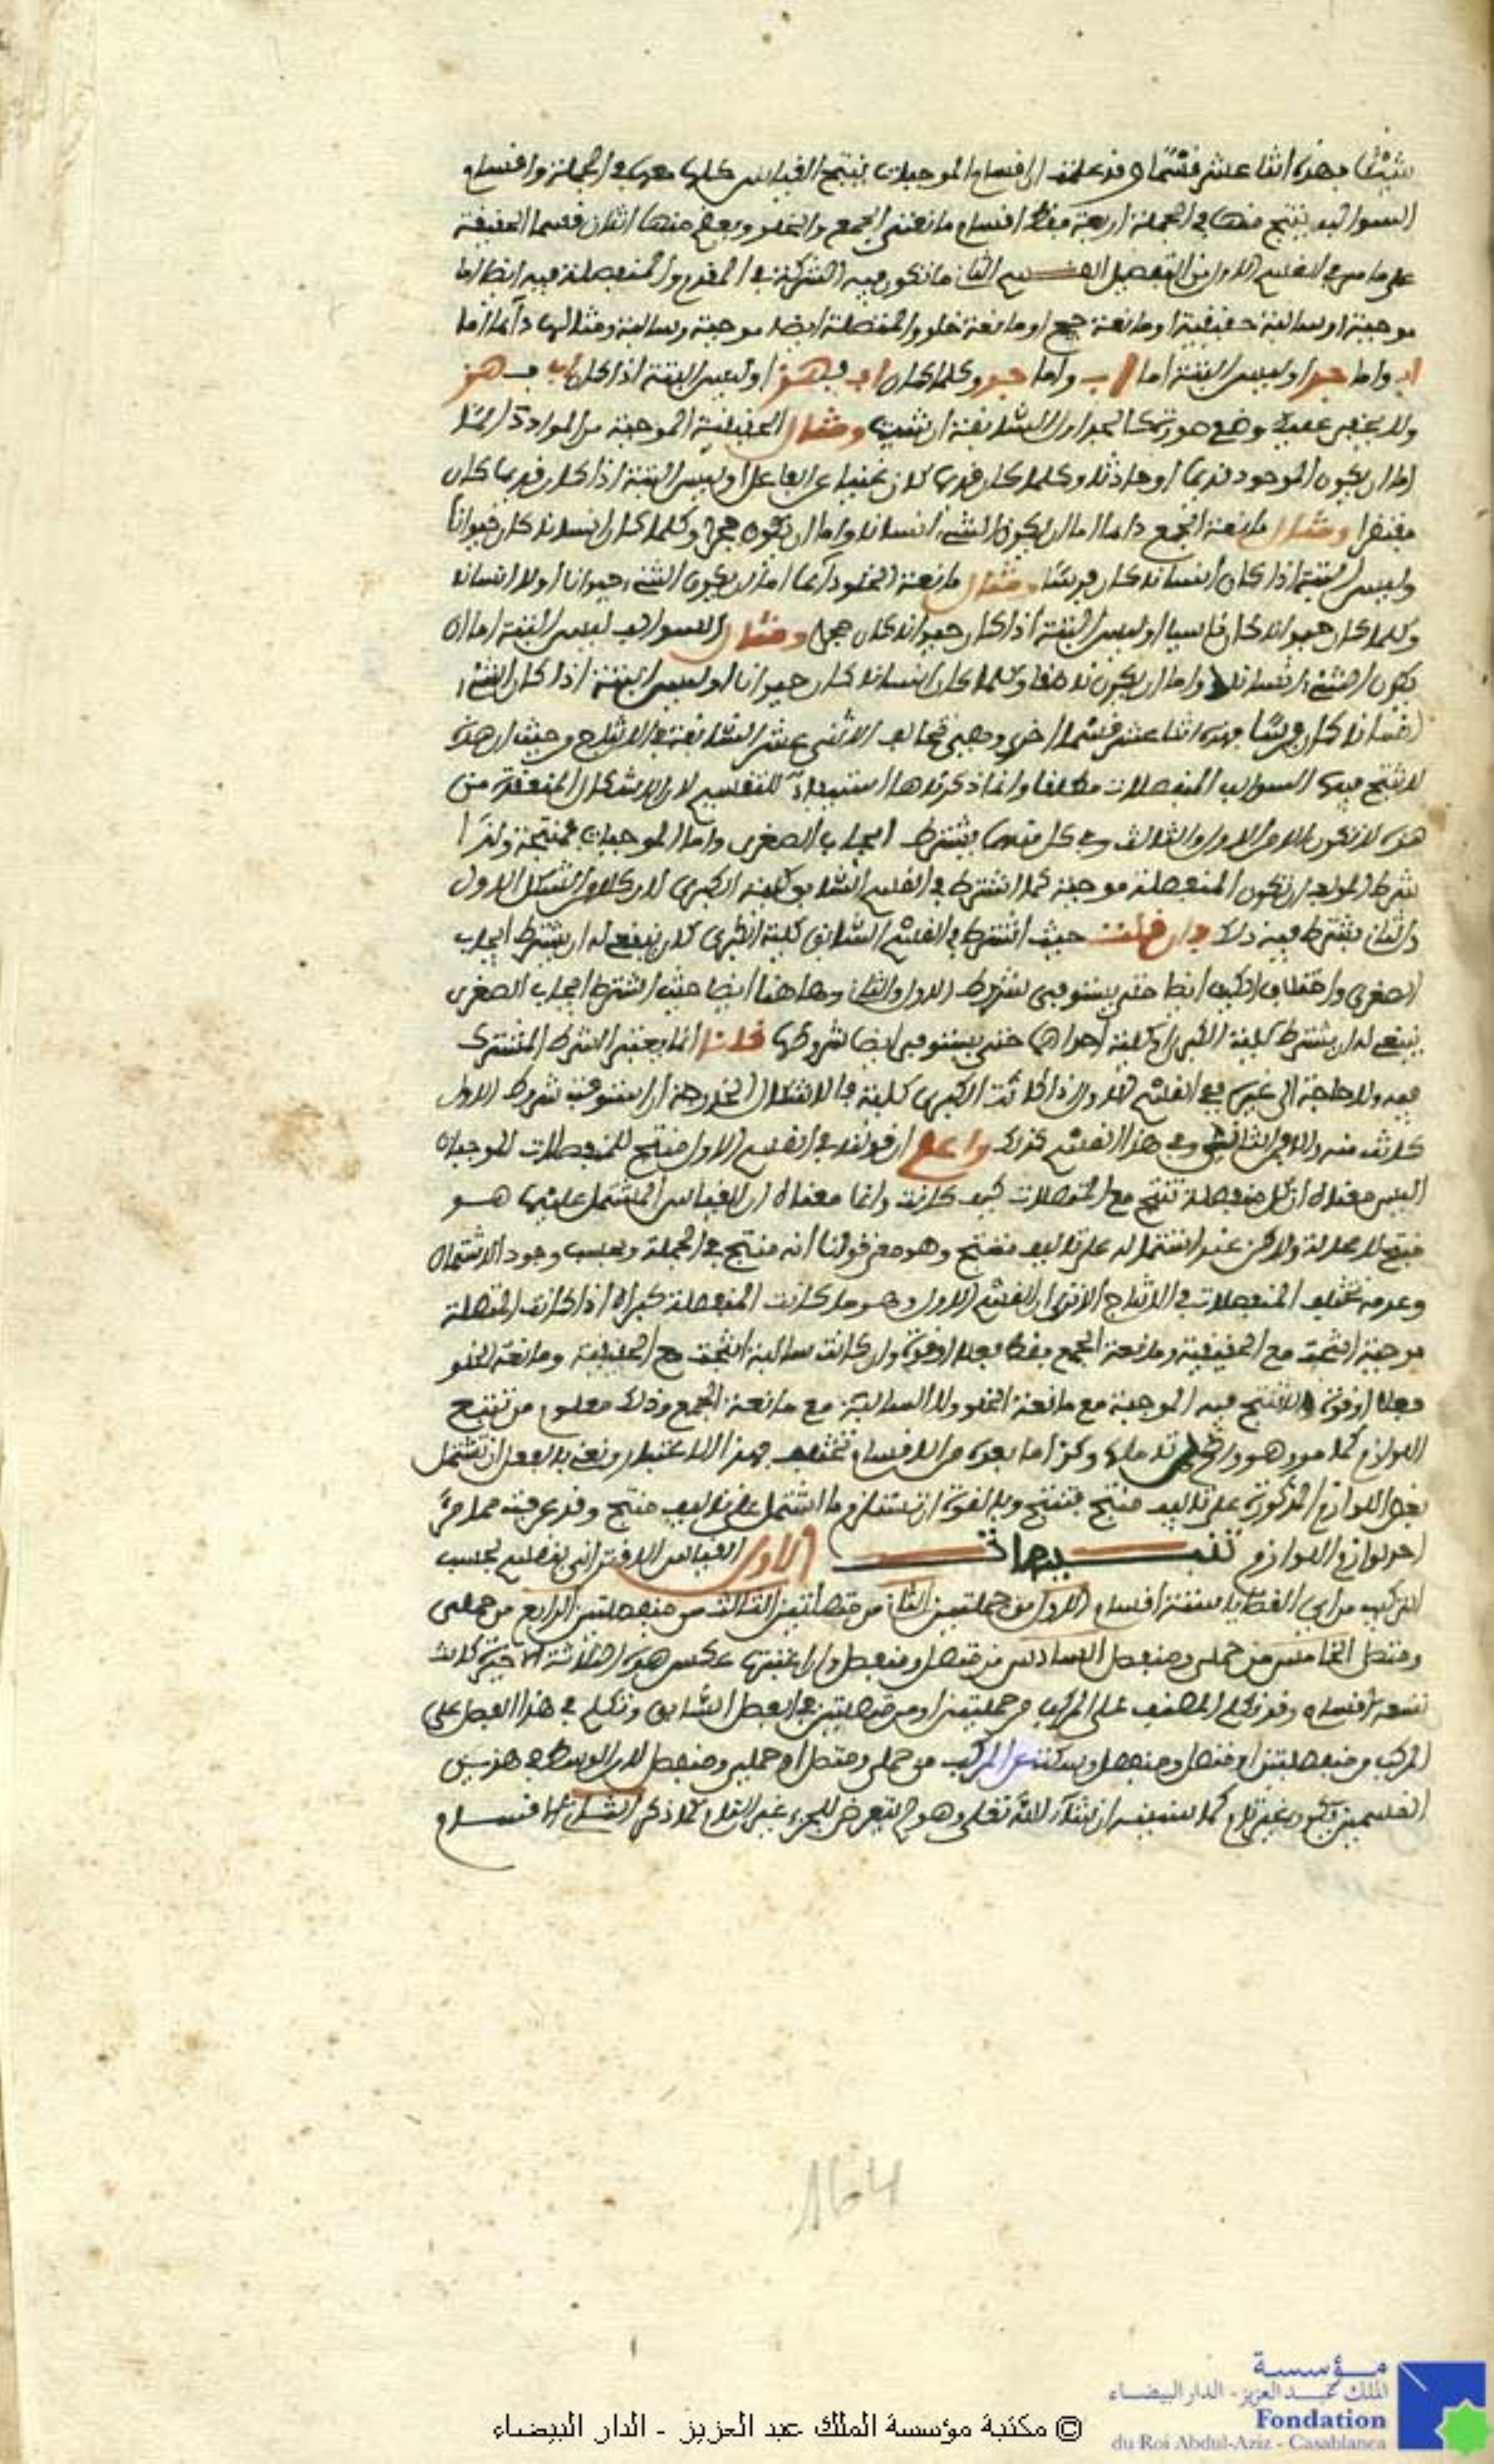 شيئا فهذه اثنا عشر قسما وقد علمت ان اقسام الموجبات ينتج القياس كلها معها في الجملة واقسام
السوالب ينتج منها في الجملة اربعة فقط اقسام مانعتي الجمع والخلو ويعقم منها اثنان قسما الحقيقة
على ما مر في القسم الاول من التفصيل القسم الثاني ما تكون فيه الشركة في المقدم والمنفصلة فيه ايضا اما
موجبة او سالبة حقيقية او مانعة جمع او مانعة خلو والمتصلة ايضا موجبة وسالبة ومثالها دائما اما
اب واما جد او ليس البتة اما اب واما جد وكلما كان اب فـ هز او ليس البتة اذا كان اب فـ هز
ولا يخفى عليك وضع صورتها كالجداول السابقة ان شئت ومثال الحقيقية الموجبة من المواد دائما
اما ان يكون الموجود قديما او حادثا وكلما كان قديما كان غنيا عن الفاعل او ليس البتة اذا كان قديما كان
مفتقرا ومثال مانعة الجمع دائما اما ان يكون الشيء انسانا واما ان يكون حجرا وكلما كان انسانا كان حيوانا
وليس البتة اذا كان انسانا كان فرسا ومثال مانعة الخلو دائما اما ان يكون الشيء حيوانا او لا انسانا
وكلما كان حيوانا كان حاسيا او ليس البتة اذا كان حيوانا كان حجرا ومثال السوالب ليس البتة اما ان
يكون الشيء انسانا واما ان يكون ناطقا وكلما كان انسانا كان حيوانا او ليس البتة اذا كان الشيء
انسانا كان فرسا فهذه اثنا عشر قسما اخرى وهي تخالف الاثني عشر السابقة في الانتاج من حيث ان هذه
لا تنتج فيها السوالب المنفصلات مطلقا وانما ذكرناها استيفاء للتقسيم لان الاشكال المنعقدة من
هذه لا تكون الا من الاول والثالث وفي كل منهما يشترط ايجاب الصغرى واما الموجبات فمنتجة ولذا
شرط المولف ان تكون المنفصلة موجبة كما اشترط في القسم السابق كلية الكبرى لان كلا من الشكل الاول
والثاني يشترط فيه ذلك فان قلت حيث اشترط في القسم السابق كلية الكبرى كان ينبغي له ان يشترط ايجاب
الصغرى واختلاف الكيف ايضا حتى يستوفى شروط الاول والثاني وهاهنا ايضا حيث اشترط ايجاب الصغرى
ينبغي له ان يشترط كلية الكبرى او كلية احداهما حتى يستوفى ايضا شروطها قلنا انما يعني الشرط المشترك
فيه ولا حاجة الى غيره ففي القسم الاول اذا كانت الكبرى كلية فالاشكال الخارجة ان استوفت شروط الاول
كانت منه والا فمن الثاني وفي هذا القسم كذلك واعلم ان قوله في القسم الاول منتج للمنفصلات الموجبات
اليس معناه ان كل منفصلة تنتج مع المتصلات كيف كانت وانما معناه ان القياس المشتمل عليها هو
منتج لا محالة ولاكن عند اشتماله على تاليف منتج وهو معنى قولنا انه منتج في الجملة وبحسب وجود الاشتمال
وعدمه تختلف المنفصلات في الانتاج الا ترى ان القسم الاول وهو ما كانت المنفصلة كبراه اذا كانت المتصلة
موجبة انتجت مع الحقيقية ومانعة الجمع فقط فعلا او قوة وان كانت سالبة انتجت مع الحقيقية ومانعة الخلو
فعلا او قوة ولا تنتج فيه الموجبة مع مانعة الخلو ولا السالبة مع مانعة الجمع وذلك معلوم من تتبع
اللوازم كما مر وهو واضح تاملها وكذا ما بعده من الاقسام تختلف بهذا الاعتبار ونعني بالفعل ان تشتمل
بعض اللوازم المذكورة على تاليف منتج فتنتج وبالقوة ان تستلزم ما اشتمل على تاليف منتج وقد عرفت مما مر
احد لوازم اللوازم تنبيهات الاول القياس الاقتراني ينقسم بحسب
التركيب من اي القضايا ستة اقسام الاول من حمليتين الثاني من متصلتين الثالث من منفصلتين الرابع من حملي
ومتصل الخامس من حملي ومنفصل السادس من متصل ومنفصل وان اعتبرتها عكس هذه الثلاثة الاخيرة كانت
تسعة اقسام وقد تكلم المصنف على المركب من حمليتين او من متصلتين في الفصل السابق وتكلم في هذا الفصل على
المركب من منفصلتين او متصل ومنفصل وسكت عن المركب من حملي ومتصل او حملي ومنفصل لان الوسط في هذين
القسمين يكون غير تام كما سنبينه ان شاء الله تعالى وهو لم يتعرض للجزء غير التام كما ذكر الثاني الاقسام
164
مؤسسة
الملك عبد العزيز - الدار البيضاء
Fondation
du Roi Abdul-Aziz - Casablanca
© مكتبة مؤسسة الملك عبد العزيز - الدار البيضاء